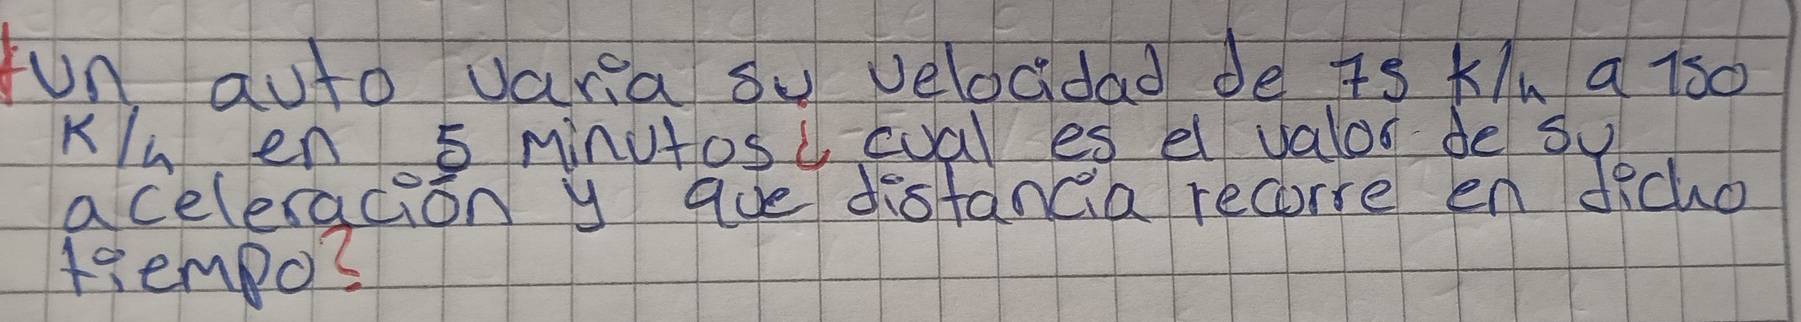 Un auto varia su velocidad de 75 K/h a 150
K/h en 5 minutos ¿ cual es el valor de su
aceleración y que distancia recorre en dicho
tiempo?